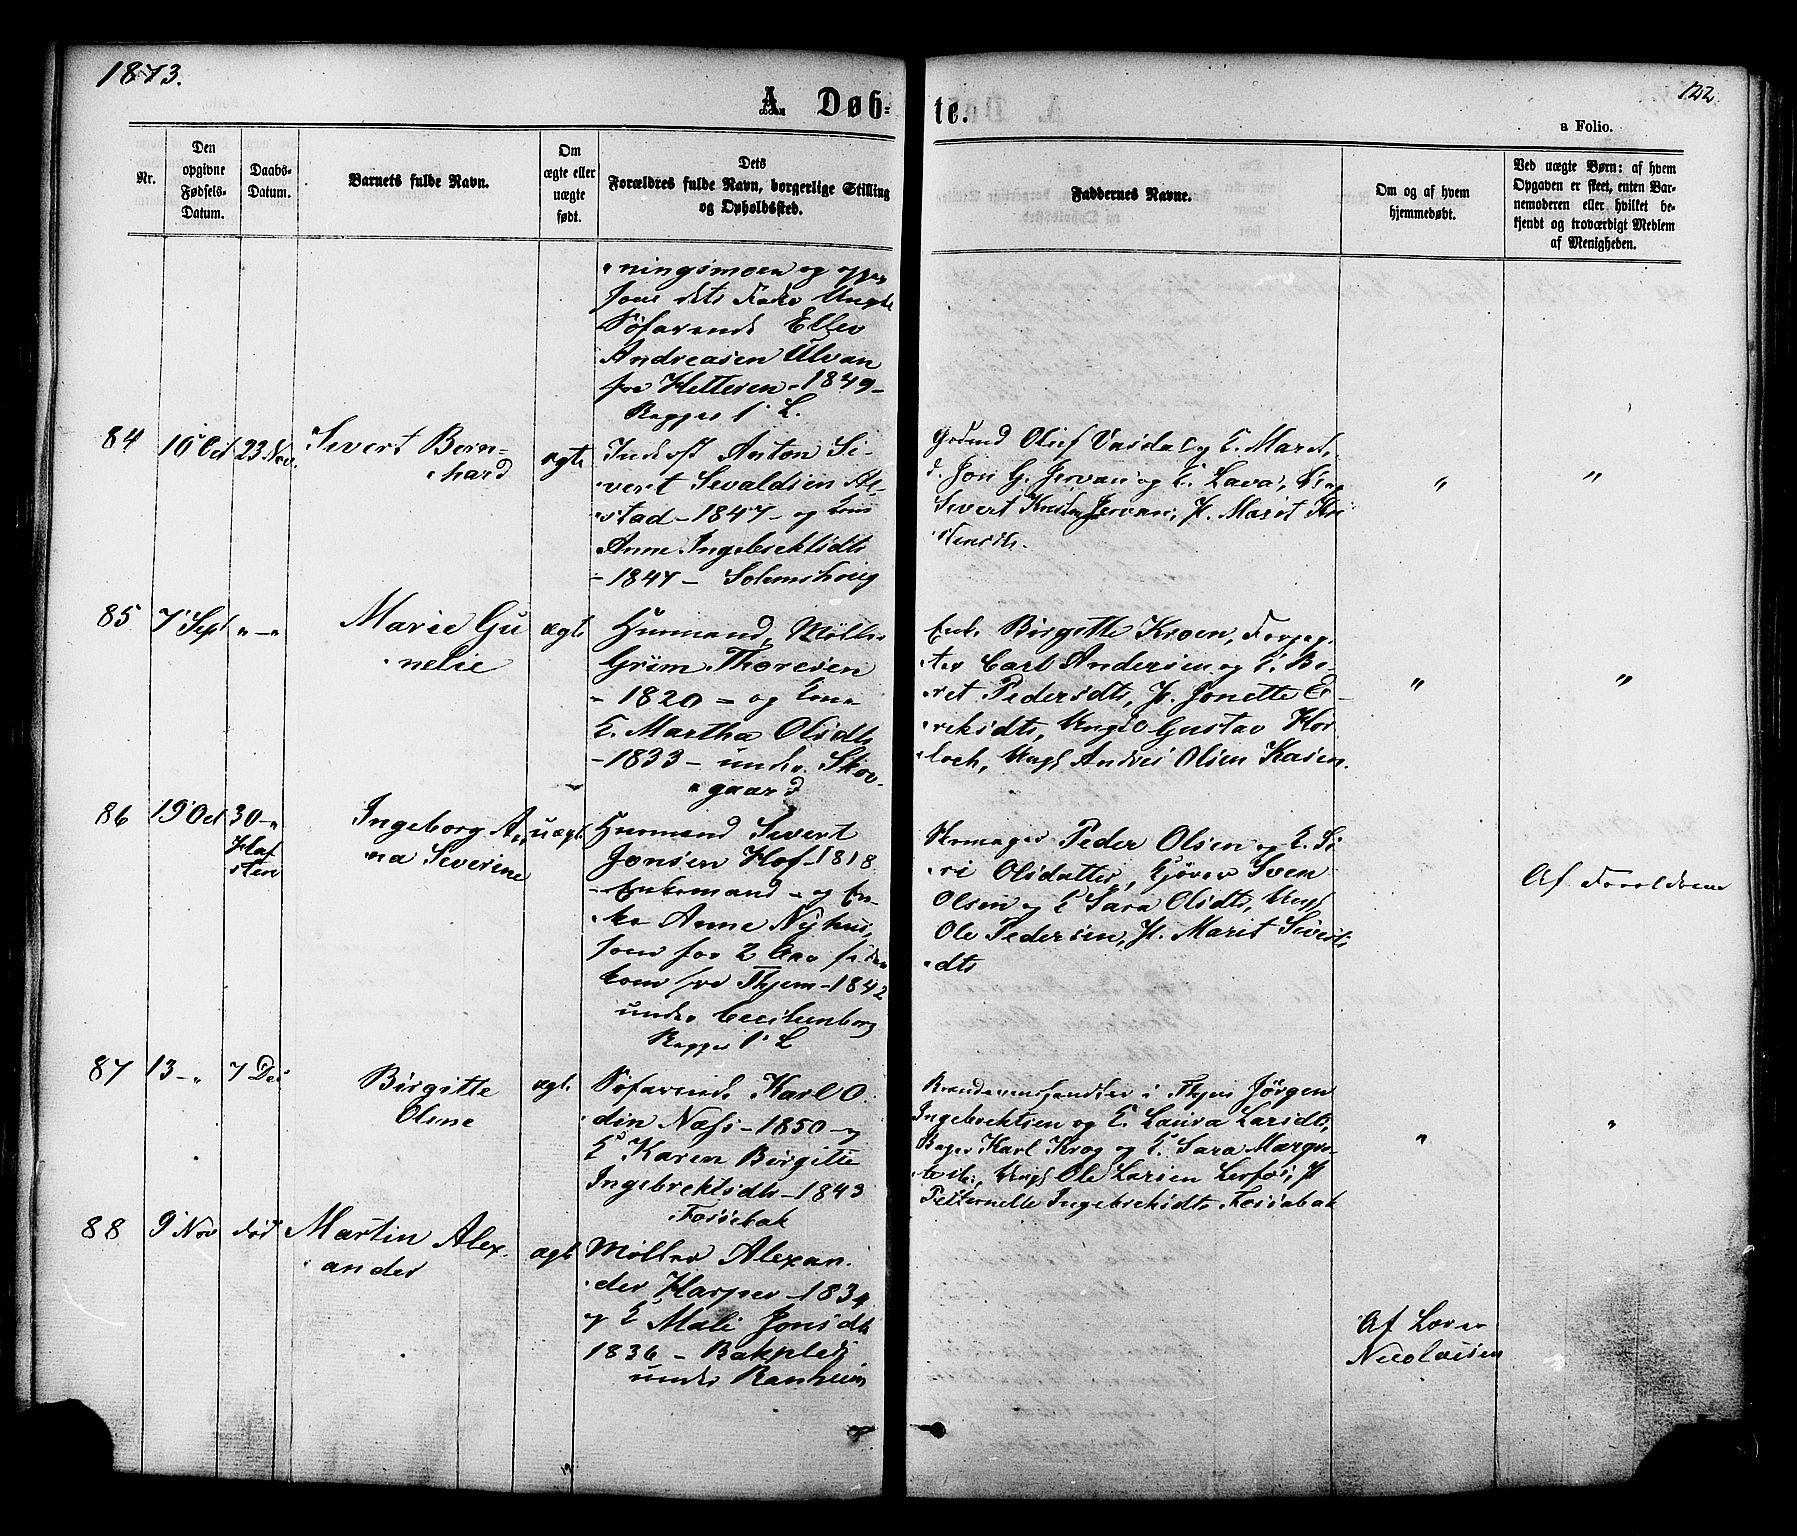 1873.
122
A. Døb-
te.
a Folio.
Nr.
Den
opgivne
Fødsels-
Datum.
Daabs-
Datum.
Barnets fulde Navn.
Om
ægte eller
uægte
født.
Dets
Forældres fulde Navn, borgerlige Stilling
og Opholdssted.
Faddernes Navne.
Om og af hvem
hjemmedøbt.
Ved uægte Børn: af hvem
Opgaven er skeet, enten Bar-
nemoderen eller hvilket be-
kjendt og troværdigt Medlem
af Menigheden.
ningsmoen og
som dets Fader Ungk.
Søfarende Ellev
Andreasen Ulvan
fra Hitteren - 1849 -
84
10 Oct
23 Nov.
Sivert Bern=
hard
ægte
Inderst Anton Si-
vert Sevaldsen
stad - 1847 - og
Anne Ingebrektsdtr
- 1847 - Solemshoug
Gdmd Olief Vasdal og E. Marit,
Jon G. Jervan og E. Lava,
Sivert Jervan, P. Marit Kri
stensdtr.
"
"
85
7 Sept
" - "
Marie Gu
nelie
ægte
Huusmand, Møller
Grim Thoresen
- 1820 = og
E. Martha Olsdtr
- 1833 - under Skov-
gaard
Enk. Birgitte Kroen, Forpag-
ter Carl Andersen og E. Be-
ret Pedersdtr, P. Jonette E-
reksdtr, Ungk Gustav Hor-
loch, Ungk Andres Olsen Kasen.
"
"
86
19 Oct
30 - "
Ingeborg An,
na Severine
uægte
Huusmand Sivert
Jonsen Hof - 1818
- Enkemand - og En-
ke Anne Nyhus,
som for 2 Aar siden
kom fra Thjem - 1842
under Cecilienborg
Skomager Peder Olsen og E. Si
ri Olsdatter, Gjørtler Sven
Olsen og E Sara Olsdtr, Ungk
Ole Pedersen, P. Marit Siverts
dtr
Af Forældrene
87
13 - "
7 Dec
Birgitte
Olsine
ægte
Søfarende Karl O
din Næss - 1850 - og
E Karen Birgitte
Ingebrektsdtr - 1843
Fossebak
Brændeviinshandler i Thjem Jörgen
Ingebrektsen og E. Laura Larsdtr,
Bager Karl Krog og E. Sara Margre-
Ungk Ole Larsen Lerfos, P
Petternelle Ingebrektsdtr Fossbak
"
"
88
9 Nov
død
Martin Alex-
ander
ægte
Møller Alexan-
der Harper - 1834
og E Mali Jonsdtr
1836 - Bakplads
under Ranheim
Af Lærer
Nicolaisen